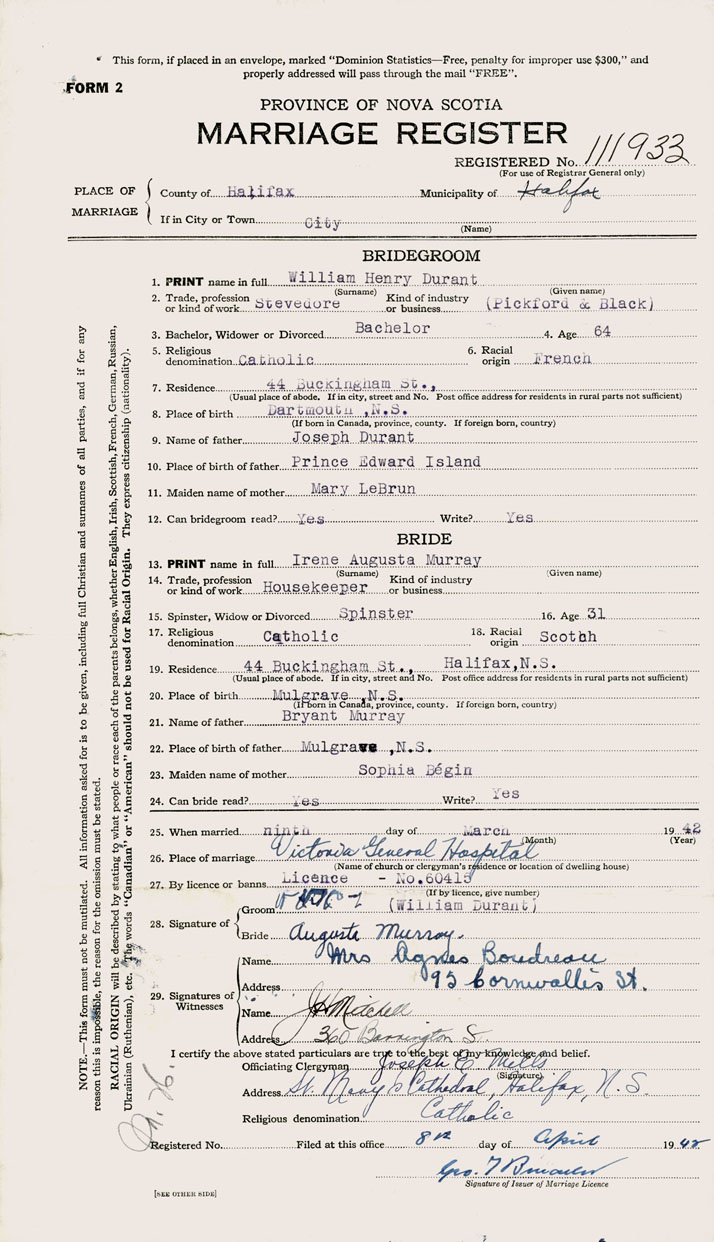 This form, if placed in an envelope, marked "Dominion Statistics—Free, penalty for improper use $300," and
properly addressed will pass through the mail "FREE".
FORM 2
PROVINCE OF NOVA SCOTIA
MARRIAGE REGISTER
REGISTERED No. 111933
(For use of Registrar General only)
PLACE OF MARRIAGE
County of Halifax Municipality of Halifax
If in City or Town City
(Name)
BRIDEGROOM
1. PRINT name in full William Henry Durant
(Surname) (Given name)
2. Trade, profession or kind of work Stevedore Kind of industry or business (Pickford & Black)
3. Bachelor, Widower or Divorced Bachelor 4. Age 64
5. Religious denomination Catholic 6. Racial origin French
7. Residence 44 Buckingham St.,
(Usual place of abode. If in city, street and No. Post office address for residents in rural parts not sufficient)
8. Place of birth Dartmouth ,N.S.
(If born in Canada, province, county. If foreign born, country)
9. Name of father Joseph Durant
10. Place of birth of father Prince Edward Island
11. Maiden name of mother Mary LeBrun
12. Can bridegroom read? Yes Write? Yes
BRIDE
13. PRINT name in full Irene Augusta Murray
(Surname) (Given name)
14. Trade, profession or kind of work Housekeeper Kind of industry or business
15. Spinster, Widow or Divorced Spinster 16. Age 31
17. Religious denomination Catholic 18. Racial origin Scothh
19. Residence 44 Buckingham St., Halifax,N.S.
(Usual place of abode. If in city, street and No. Post office address for residents in rural parts not sufficient)
20. Place of birth Mulgrave ,N.S.
(If born in Canada, province, county. If foreign born, country)
21. Name of father Bryant Murray
22. Place of birth of father Mulgrave ,N.S.
23. Maiden name of mother Sophia Bégin
24. Can bride read? Yes Write? Yes
25. When married ninth day of March 1942
(Month) (Year)
26. Place of marriage Victoria General Hospital
(Name of church or clergyman's residence or location of dwelling house)
27. By licence or banns Licence - No.60415
(If by licence, give number)
28. Signature of
Groom (William Durant)
Bride Augusta Murray.
29. Signatures of Witnesses
Name Mrs Agnes Boudreau
Address 95 Cornwallis St.
Name J H Mitchell
Address 360 Barrington S.
I certify the above stated particulars are true to the best of my knowledge and belief.
Officiating Clergyman Joseph E Mills
(Signature)
Address St. Mary's Cathedral, Halifax, N.S.
Religious denomination Catholic
Registered No. Filed at this office 8th day of April 1942
Geo. F
Signature of Issuer of Marriage Licence
[SEE OTHER SIDE]
NOTE.—This form must not be mutilated. All information asked for is to be given, including full Christian and surnames of all parties, and if for any
reason this is impossible, the reason for the omission must be stated.
RACIAL ORIGIN will be described by stating to what people or race each of the parents belongs, whether English, Irish, Scottish, French, German, Russian,
Ukrainian (Ruthenian), etc. The words "Canadian" or "American" should not be used for Racial Origin. They express citizenship (nationality).